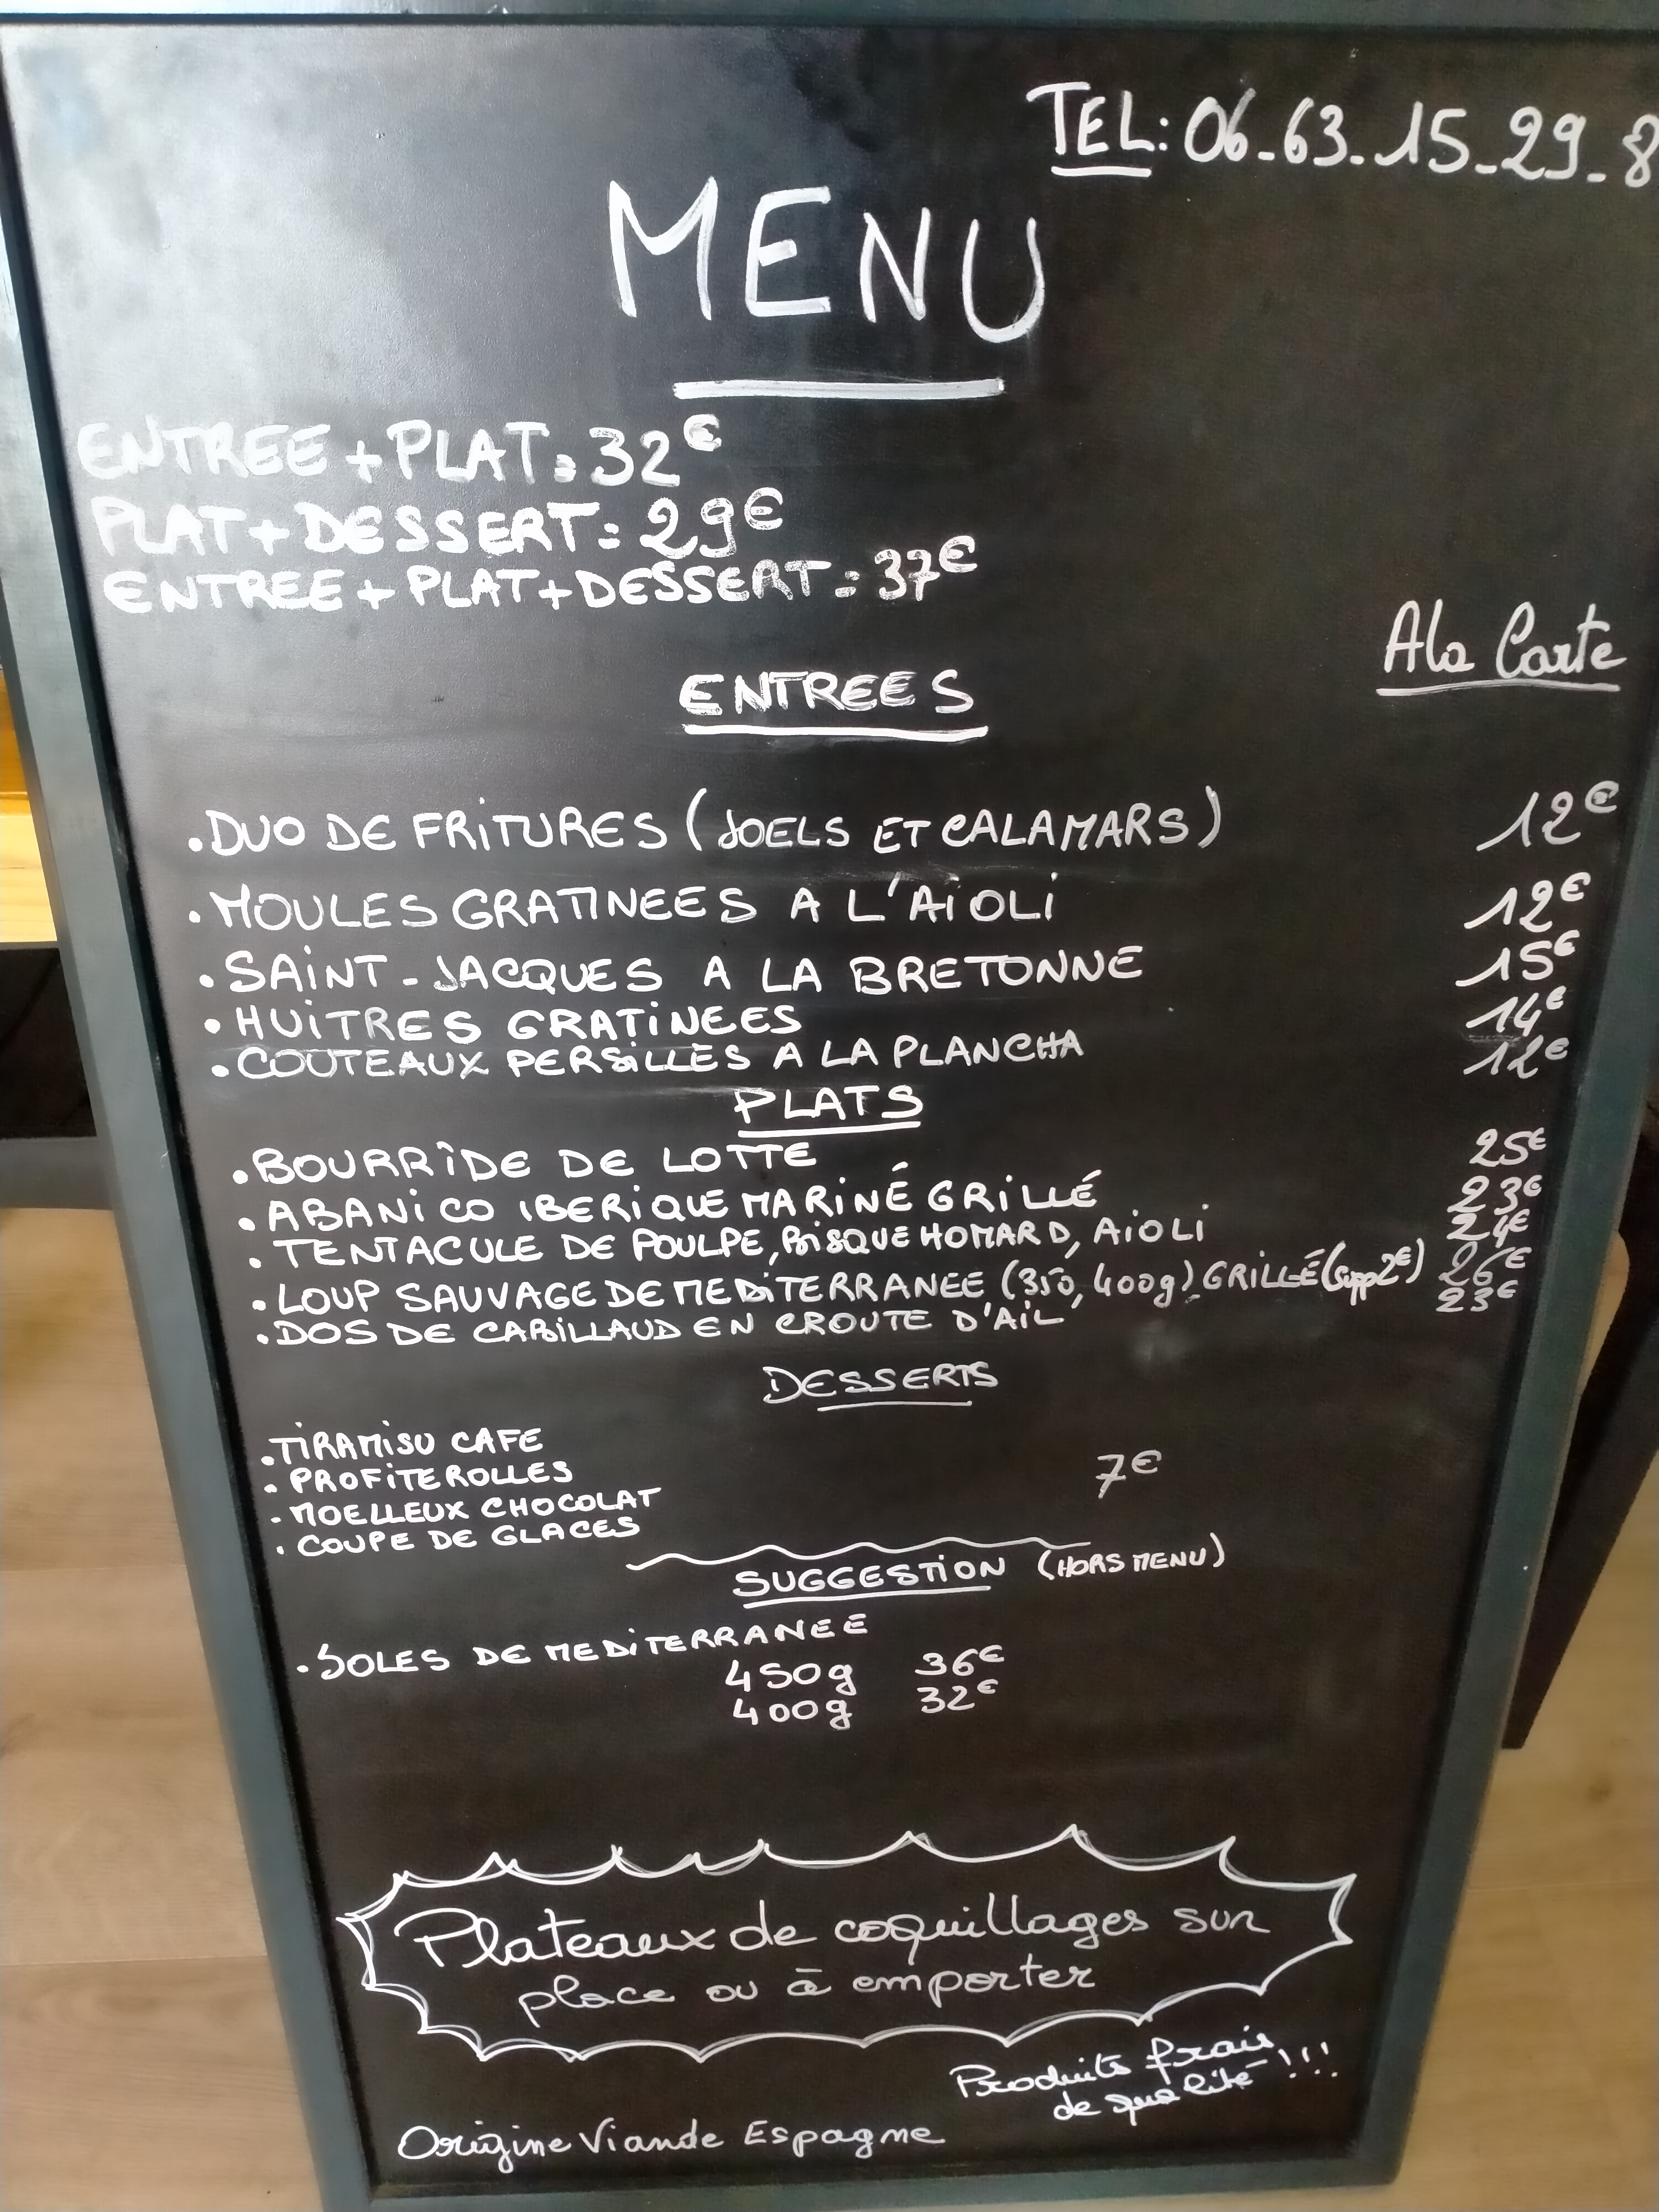 TEL: 06-63-15-29-8
MENU
ENTREE + PLAT = 32€
PLAT + DESSERT = 29€
ENTREE + PLAT + DESSERT = 37€
A la Carte
ENTREES
. DUO DE FRITURES (JOELS ET CALAMARS) 12€
. MOULES GRATINEES A L'AÏOLI 12€
. SAINT-JACQUES A LA BRETONNE 15€
. HUITRES GRATINEES 14€
. COUTEAUX PERSILLES A LA PLANCHA 12€
PLATS
. BOURRIDE DE LOTTE 25€
. ABANICO IBERIQUE MARINÉ GRILLÉ 23€
. TENTACULE DE POULPE, BISQUE HOMARD, AÏOLI 24€
. LOUP SAUVAGE DE MEDITERRANEE (350, 400g) GRILLÉ (supp 2€) 26€
. DOS DE CABILLAUD EN CROUTE D'AIL 23€
DESSERTS
. TIRAMISU CAFE
. PROFITEROLLES
. MOELLEUX CHOCOLAT
. COUPE DE GLACES
7€
SUGGESTION (HORS MENU)
. SOLES DE MEDITERRANEE
450g 36€
400g 32€
Plateaux de coquillages sur
place ou à emporter
Produits frais
de qualité !!!
Origine Viande Espagne